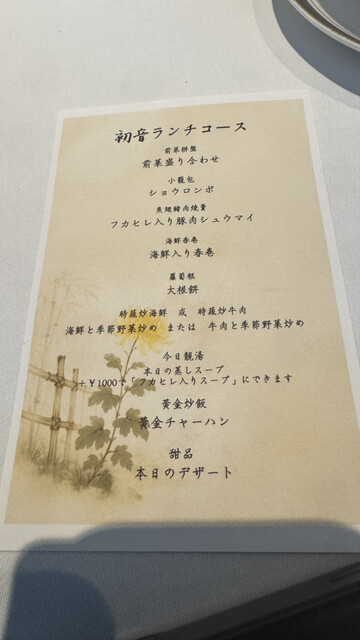 初音ランチコース
前菜拼盤
前菜盛り合わせ
小籠包
ショウロンポ
魚翅豬肉燒賣
フカヒレ入り豚肉シュウマイ
海鮮春巻
海鮮入り春巻
蘿蔔糕
大根餅
時蔬炒海鮮 或 時蔬炒牛肉
海鮮と季節野菜炒め または 牛肉と季節野菜炒め
今日靚湯
本日の蒸しスープ
+￥1000で「フカヒレ入りスープ」にできます
黄金炒飯
黄金チャーハン
甜品
本日のデザート